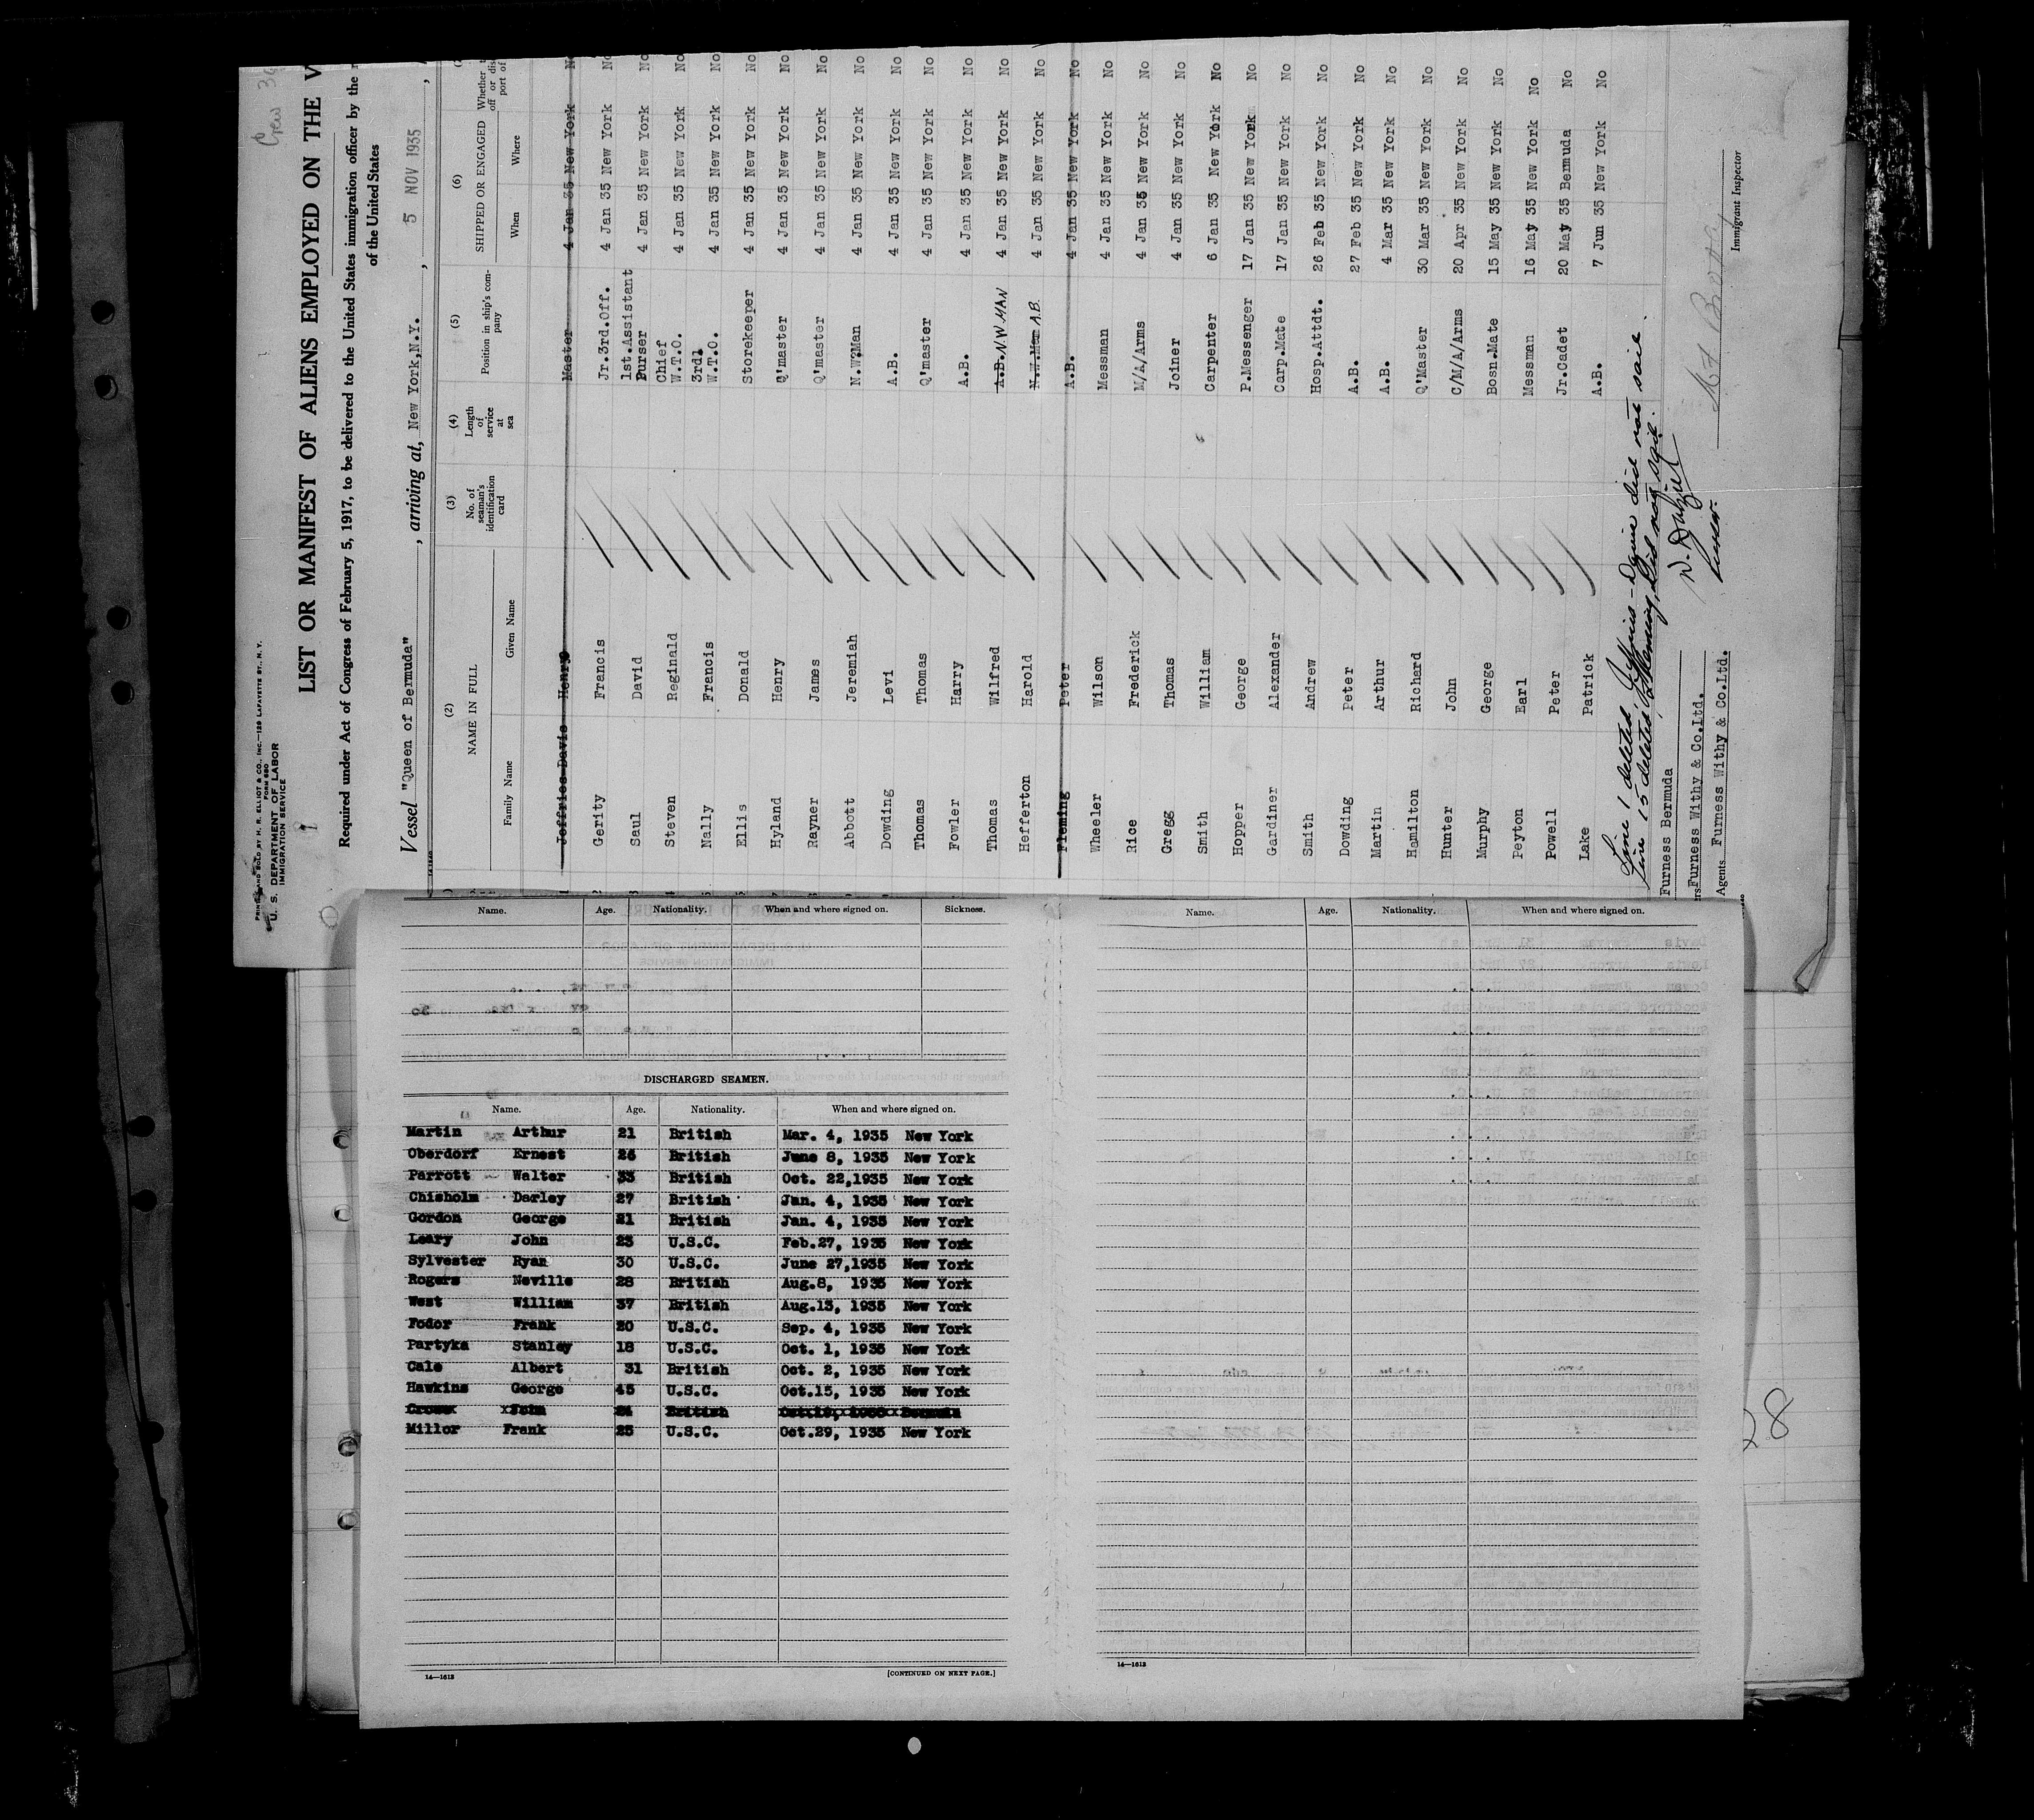 PRINTED AND SOLD BY H. R. ELLIOT & CO., INC.—129 LAFAYETTE ST., N. Y.
FORM 680
U. S. DEPARTMENT OF LABOR
IMMIGRATION SERVICE
Crew
LIST OR MANIFEST OF ALIENS EMPLOYED ON THE V
Required under Act of Congress of February 5, 1917, to be delivered to the United States immigration officer by the r
of the United States
Vessel "Queen of Bermuda", arriving at, New York, N.Y., 5 NOV 1935,
(2) (3) (4) (5) (6)
NAME IN FULL No. of seaman's identification card Length of service at sea Position in ship's company SHIPPED OR ENGAGED Whether
Family Name Given Name When Where
1 Jeffries-Davis Henry Master 4 Jan 35 New York No
2 Gerity Francis Jr.3rd.Off. 4 Jan 35 New York No
3 Saul David 1st.Assistant Purser 4 Jan 35 New York No
4 Steven Reginald Chief W.T.O. 4 Jan 35 New York No
5 Nally Francis 3rdl W.T.O. 4 Jan 35 New York No
Ellis Donald Storekeeper 4 Jan 35 New York No
Hyland Henry Q'master 4 Jan 35 New York No
Rayner James Q'master 4 Jan 35 New York No
Abbott Jeremiah N.W.Man 4 Jan 35 New York No
Dowding Levi A.B. 4 Jan 35 New York No
Thomas Thomas Q'master 4 Jan 35 New York No
Fowler Harry A.B. 4 Jan 35 New York No
Thomas Wilfred A.B. N.W MAN 4 Jan 35 New York No
Hefferton Harold N.W.Man A.B. 4 Jan 35 New York No
Fleming Peter A.B. 4 Jan 35 New York No
Wheeler Wilson Messman 4 Jan 35 New York No
Rice Frederick M/A/Arms 4 Jan 35 New York No
Gregg Thomas Joiner 4 Jan 35 New York No
Smith William Carpenter 6 Jan 35 New York No
Hopper George P.Messenger 17 Jan 35 New York No
Gardiner Alexander Carp.Mate 17 Jan 35 New York No
Smith Andrew Hosp.Attdt. 26 Feb 35 New York No
Dowding Peter A.B. 27 Feb 35 New York No
Martin Arthur A.B. 4 Mar 35 New York No
Hamilton Richard Q'Master 30 Mar 35 New York No
Hunter John C/M/A/Arms 20 Apr 35 New York No
Murphy George Bosn.Mate 15 May 35 New York No
Peyton Earl Messman 16 May 35 New York No
Powell Peter Jr.Cadet 20 May 35 Bermuda No
Lake Patrick A.B. 7 Jun 35 New York No
Line 1 deleted, Jeffries-Davis did not sail.
Line 15 deleted Fleming, did not sail.
Furness Bermuda
Furness Withy & Co.Ltd.
Agents Furness Withy & Co.Ltd.
Immigrant Inspector
Name. Age. Nationality. When and where signed on. Sickness.
DISCHARGED SEAMEN.
Name. Age. Nationality. When and where signed on.
Martin Arthur 21 British Mar. 4, 1935 New York
Oberdorf Ernest 26 British June 8, 1935 New York
Parrott Walter 33 British Oct. 22,1935 New York
Chisholm Darley 27 British Jan. 4, 1935 New York
Gordon George 21 British Jan. 4, 1935 New York
Leary John 23 U.S.C. Feb.27, 1935 New York
Sylvester Ryan 30 U.S.C. June 27,1935 New York
Rogers Neville 28 British Aug.8, 1935 New York
West William 37 British Aug.13, 1935 New York
Fodor Frank 20 U.S.C. Sep. 4, 1935 New York
Partyka Stanley 18 U.S.C. Oct. 1, 1935 New York
Cale Albert 31 British Oct. 2, 1935 New York
Hawkins George 45 U.S.C. Oct.15, 1935 New York
British
Millor Frank 25 U.S.C. Oct.29, 1935 New York
14—1613
[CONTINUED ON NEXT PAGE.]
Name. Age. Nationality. When and where signed on.
14—1613
28